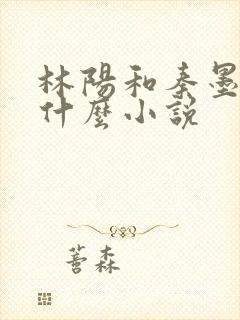 林陽和秦墨
什麼小説
蒼森